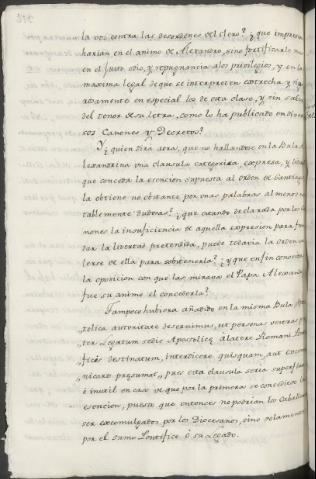 la voz contra las desordenes del Clero? y que impresion
harian en el animo de Alexandro, sino fortificarlo mas
en el justo odio, y repugnancia a los privilegios, y en la
maxima legal de que se interpreten estrecha y rig
rosamente en especial los de esta clase, y sin salir
del tenor de su letra, como lo ha publicado en diver
sos Canones y Decretos?
Y, quien dirá aora, que no hallandose en la Bula A
lexandrina una clausula categorica, expresa, y
que conceda la esencion supuesta al orden de Santiago,
la obtiene no obstante por unas palabras al menos no
tablemente dudosas? que estando declarada por los ca
nones la insuficiencia de aquella expresion para fun
dar la libertad pretendida, puede todavia la Orden va
lerse de ella para sobstenerla? y que en fin consista
la oposicion con que las miraba el Papa Alexandro
fue su animo el concederla?
Tampoco hubiera añadido en la misma Bula Apos
tolica autoritate decernimus, ut personas vestras præ
ter Legatum sedis Apostolicæ, a latere Romani Ponti
ficis destinatum, interdicere quisquam, aut excomu
nicare præsumat, pues esta clausula seria superflua
é inutil en caso de que por la primera se concediese la
esencion, puesto que entonces no podrian los Caballeros
ser excomulgados por los Diocesanos, sino solamente
por el sumo Pontifice ó su Legado.